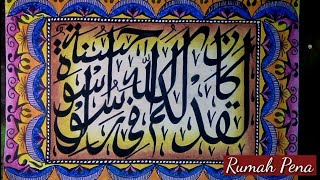 لقد كان لكم في رسول الله أسوة حسنة
Rumah Pena